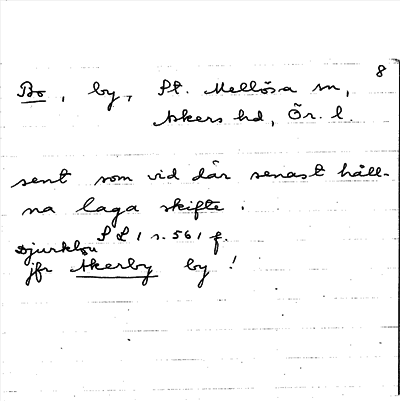 8
Bo, by, St. Mellösa sn,
Askers hd, Ör. l.
sent som vid där senast håll-
na laga skifte.
Djurklou S L I s. 561 f.
jfr Åkerby by!